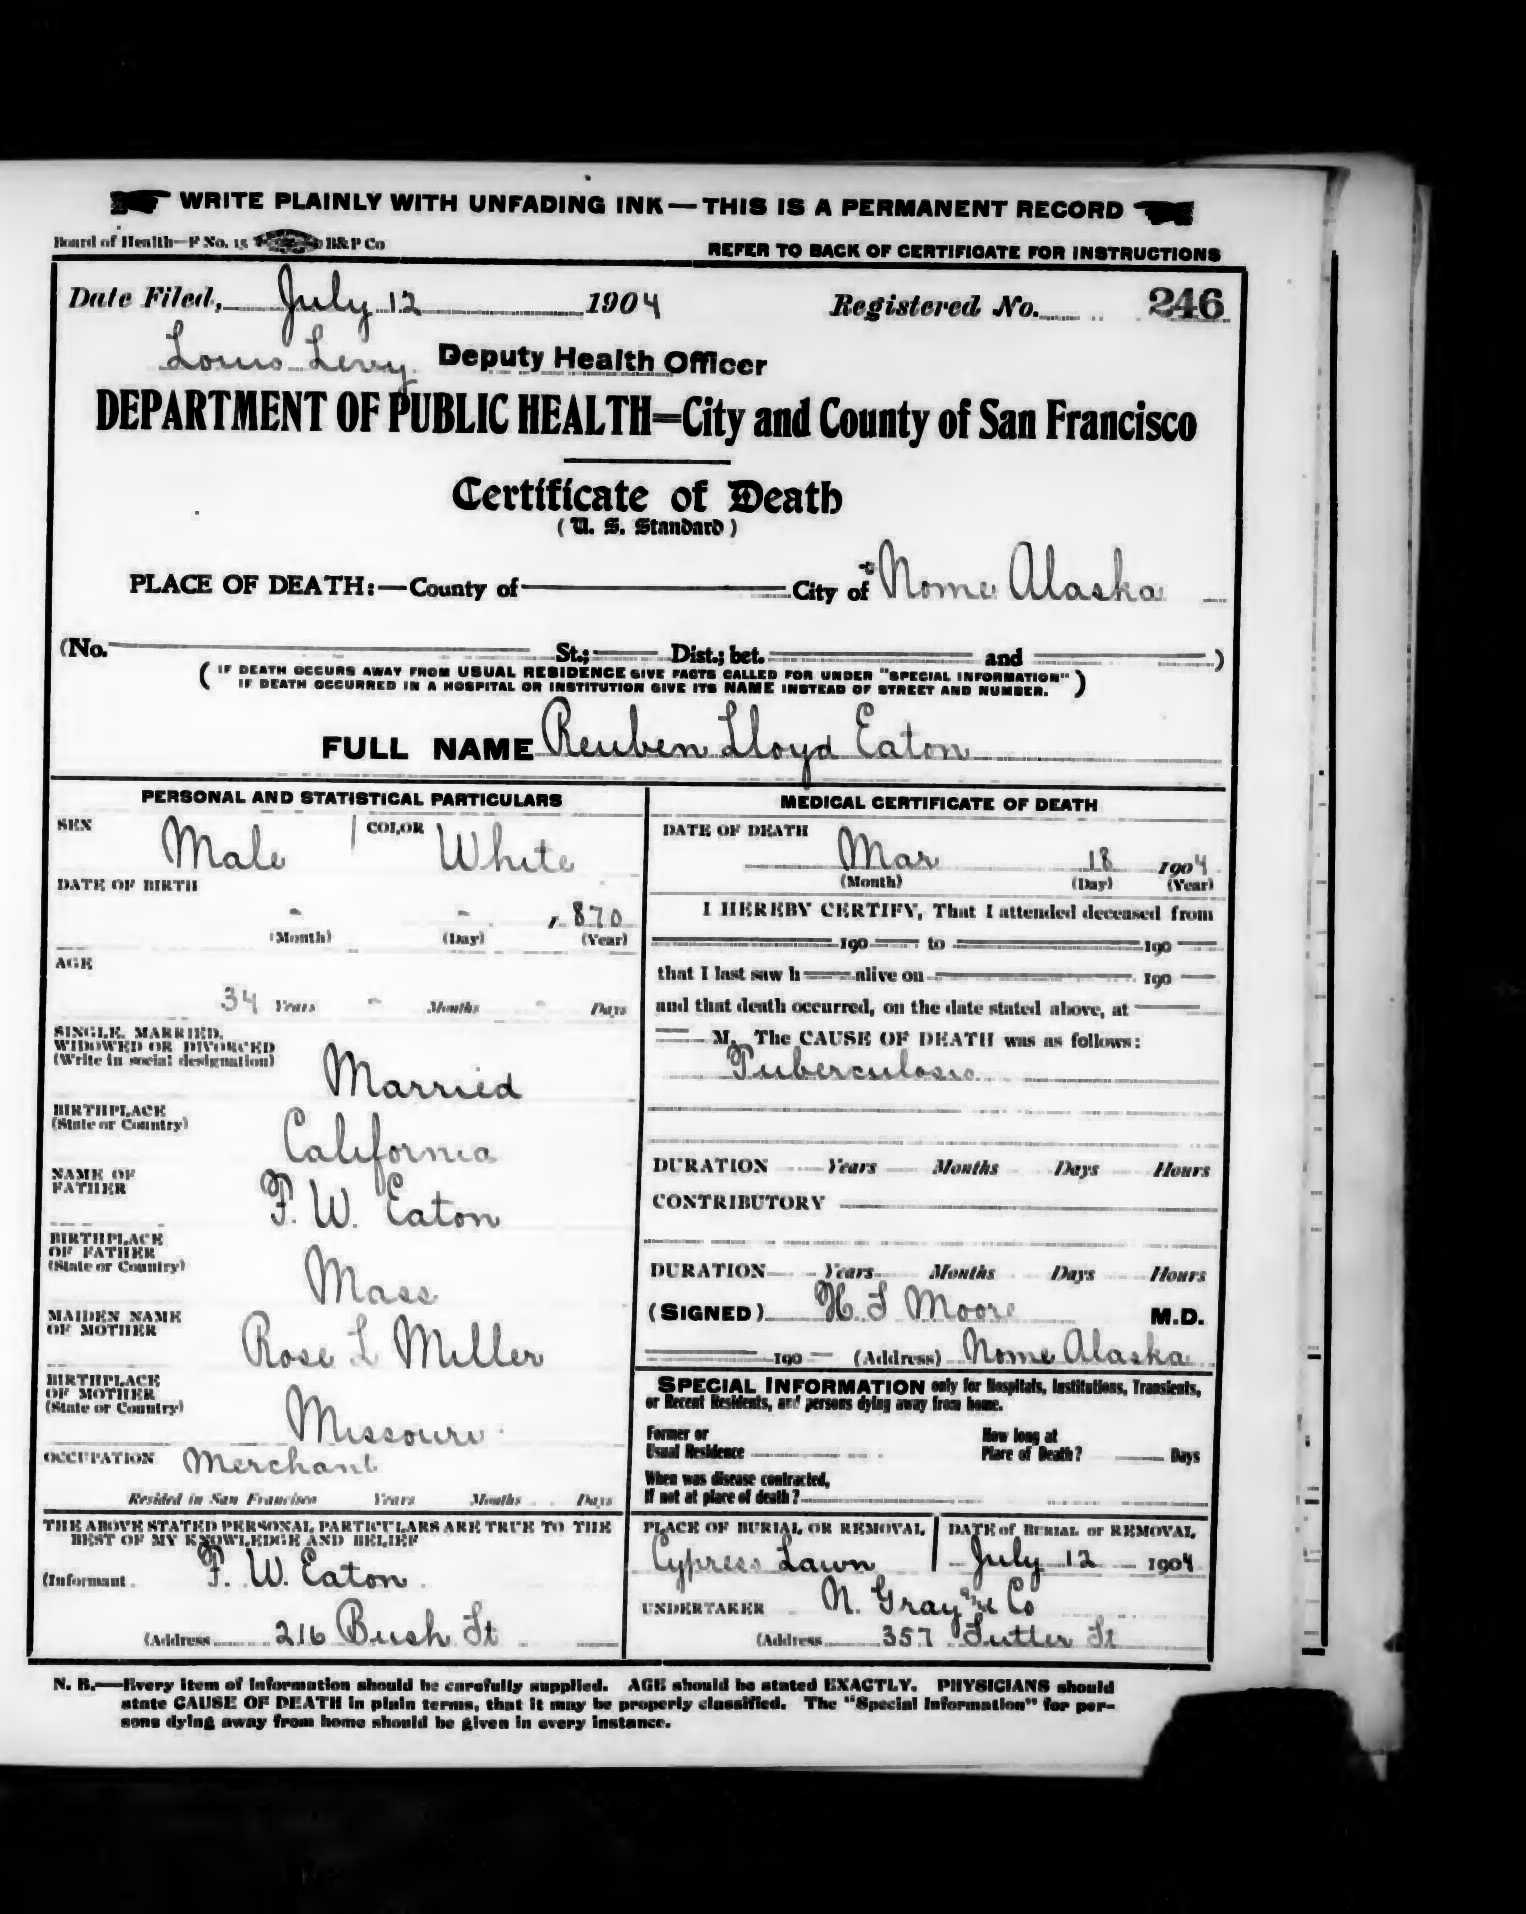 WRITE PLAINLY WITH UNFADING INK—THIS IS A PERMANENT RECORD
Board of Health—F No. 15 B&P Co
REFER TO BACK OF CERTIFICATE FOR INSTRUCTIONS
Date Filed, July 12 1904 Registered No. 246
Louis Levy Deputy Health Officer
DEPARTMENT OF PUBLIC HEALTH=City and County of San Francisco
Certificate of Death
(U. S. Standard)
PLACE OF DEATH:—County of City of Nome Alaska
(No. St.; Dist.; bet. and )
(IF DEATH OCCURS AWAY FROM USUAL RESIDENCE GIVE FACTS CALLED FOR UNDER "SPECIAL INFORMATION"
IF DEATH OCCURRED IN A HOSPITAL OR INSTITUTION GIVE ITS NAME INSTEAD OF STREET AND NUMBER.)
FULL NAME Reuben Lloyd Eaton
PERSONAL AND STATISTICAL PARTICULARS
SEX Male COLOR White
DATE OF BIRTH
- - 1870
(Month) (Day) (Year)
AGE
34 Years - Months - Days
SINGLE, MARRIED,
WIDOWED OR DIVORCED
(Write in social designation)
Married
BIRTHPLACE
(State or Country)
California
NAME OF
FATHER
F. W. Eaton
BIRTHPLACE
OF FATHER
(State or Country)
Mass
MAIDEN NAME
OF MOTHER
Rose L Miller
BIRTHPLACE
OF MOTHER
(State or Country)
Missouri
OCCUPATION Merchant
Resided in San Francisco Years Months Days
THE ABOVE STATED PERSONAL PARTICULARS ARE TRUE TO THE
BEST OF MY KNOWLEDGE AND BELIEF
(Informant F. W. Eaton
(Address 216 Bush St
MEDICAL CERTIFICATE OF DEATH
DATE OF DEATH
Mar 18 1904
(Month) (Day) (Year)
I HEREBY CERTIFY, That I attended deceased from
190 to 190
that I last saw h alive on 190
and that death occurred, on the date stated above, at
M. The CAUSE OF DEATH was as follows:
Tuberculosis
DURATION Years Months Days Hours
CONTRIBUTORY
DURATION Years Months Days Hours
(SIGNED) H S Moore M.D.
190 (Address) Nome Alaska
SPECIAL INFORMATION only for Hospitals, Institutions, Transients,
or Recent Residents, and persons dying away from home.
Former or
Usual Residence
How long at
Place of Death? Days
When was disease contracted,
If not at place of death?
PLACE OF BURIAL OR REMOVAL
Cypress Lawn
DATE of BURIAL or REMOVAL
July 12 1904
UNDERTAKER N. Gray and Co
(Address 357 Sutter St
N. B.—Every item of information should be carefully supplied. AGE should be stated EXACTLY. PHYSICIANS should
state CAUSE OF DEATH in plain terms, that it may be properly classified. The "Special Information" for per-
sons dying away from home should be given in every instance.